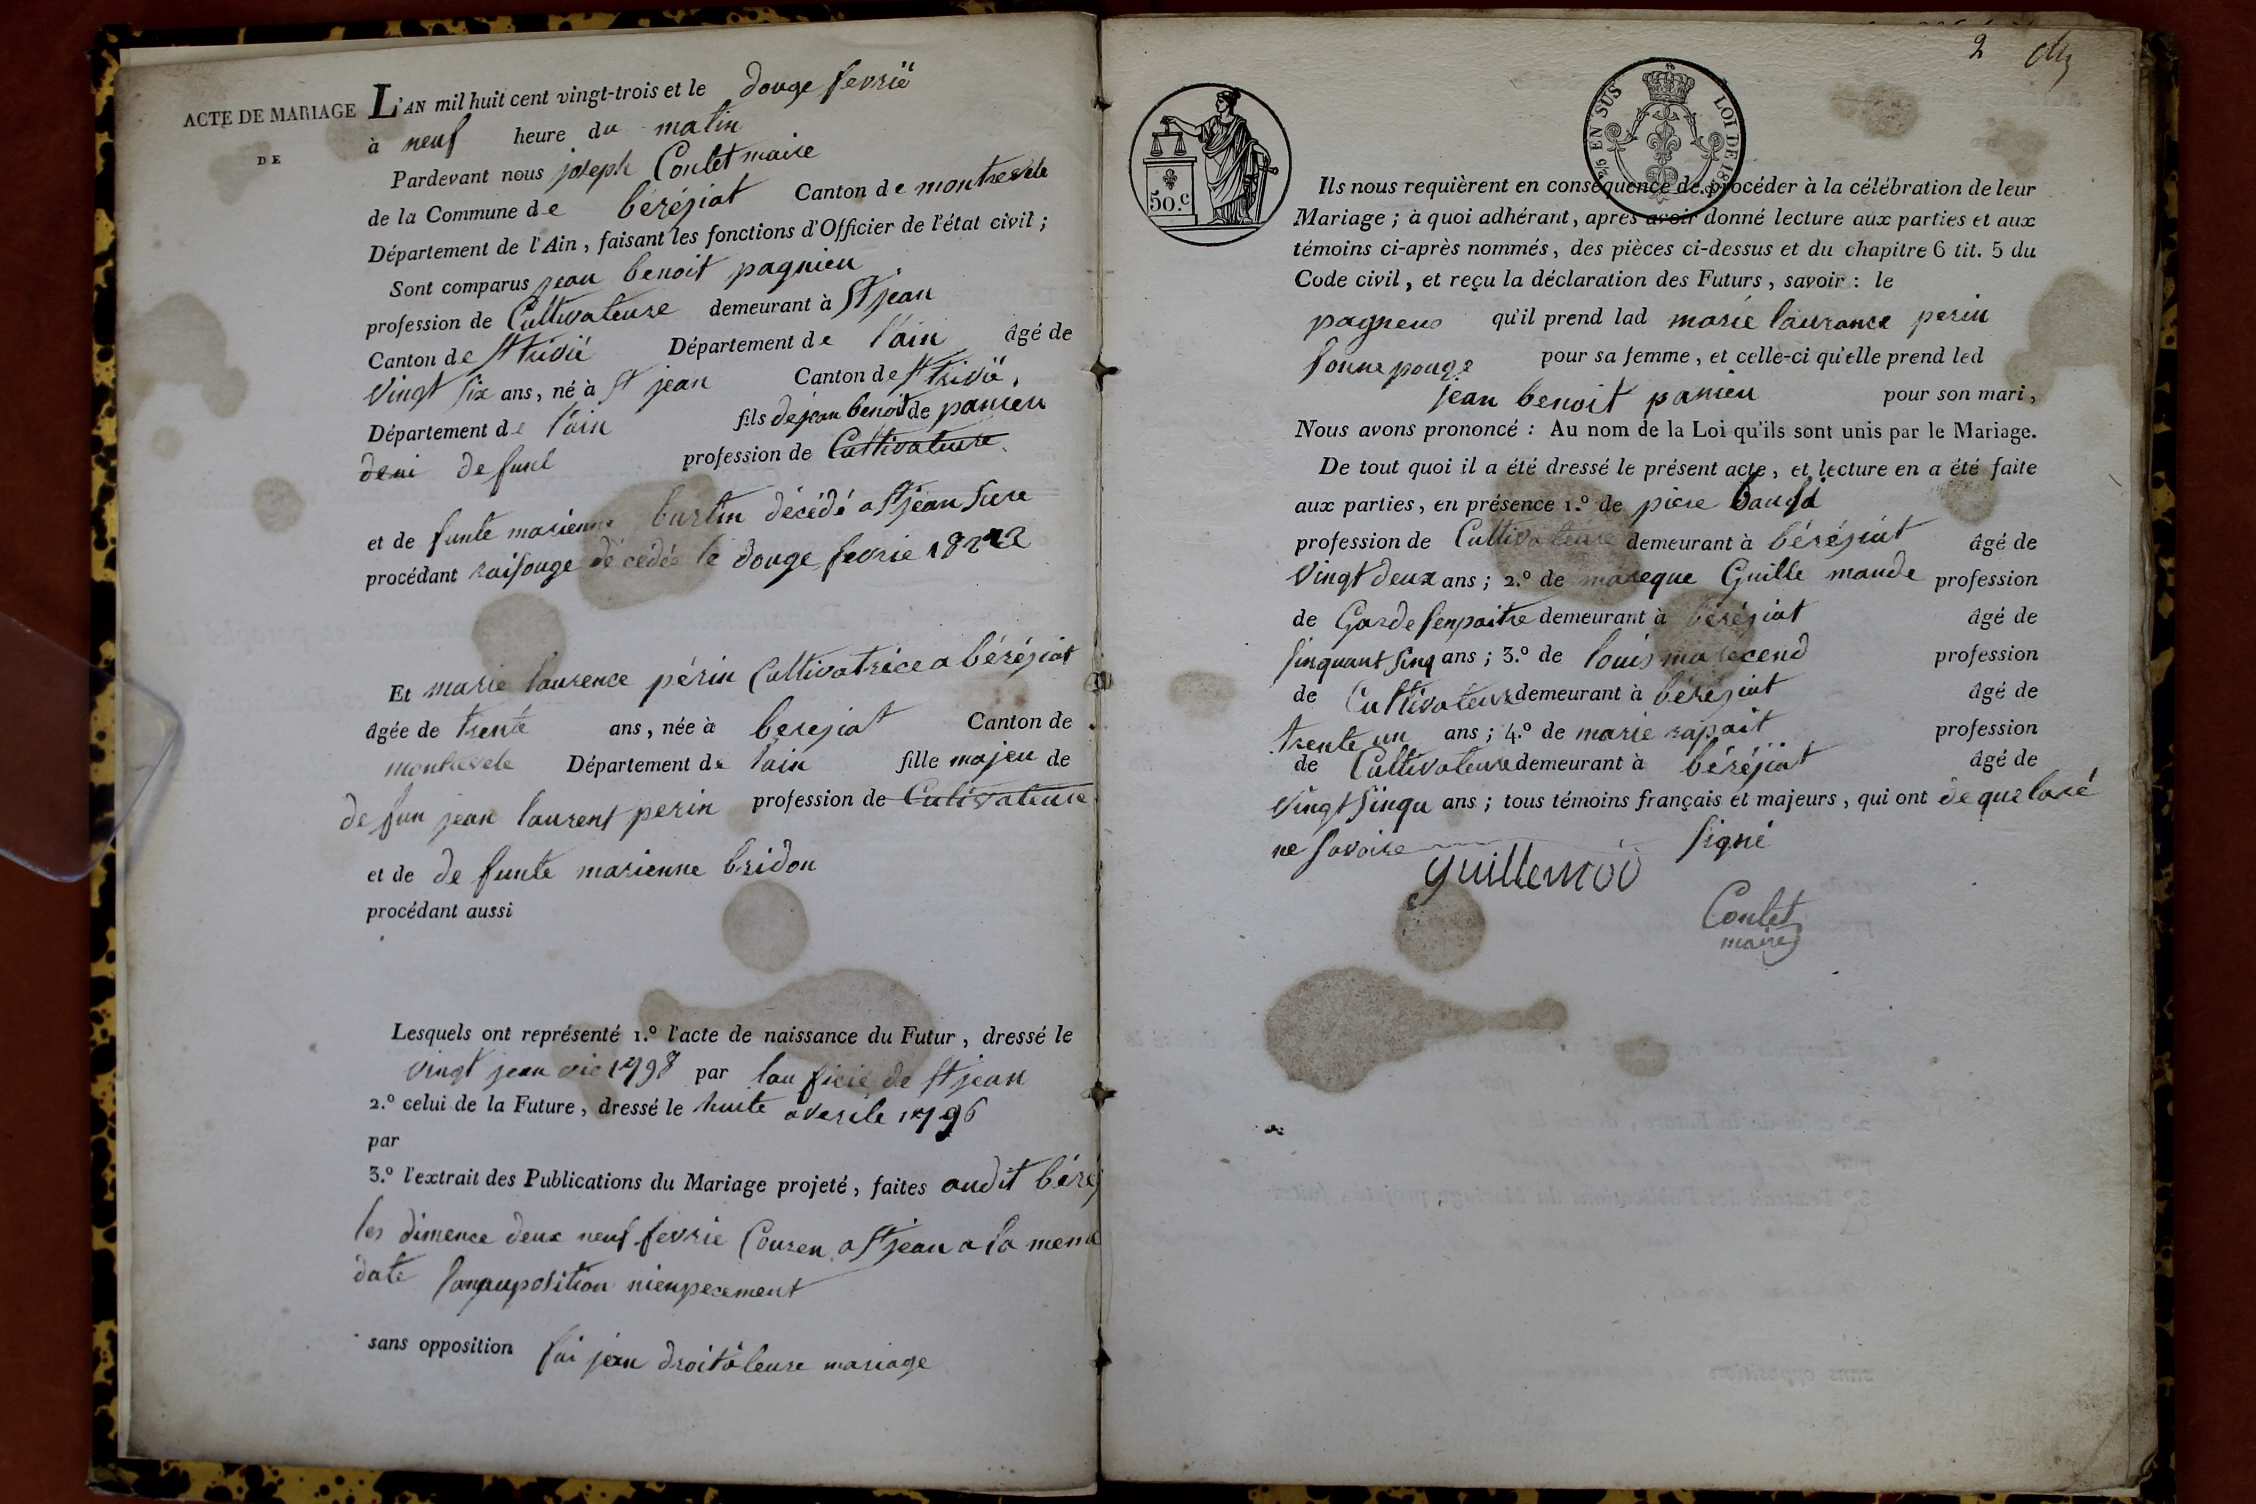 ACTE DE MARIAGE
DE
L'AN mil huit cent vingt-trois et le douge fevrië
à neuf heure du matin
Pardevant nous joseph Conlet maire
de la Commune de béréziat Canton de montrevele
Département de l'Ain, faisant les fonctions d'Officier de l'état civil ;
Sont comparus jean benoit pagnieu
profession de Cultivateure demeurant à St jean
Canton de St trivié Département de l'ain âgé de
vingt six ans, né à St jean Canton de St trivié,
Département de l'ain fils de jean benoit de panieu
de funt profession de Cultivateure
et de funte marienne burtin décédé a St jean sure
procédant raisouge décédé le douge fevrie 1822
Et marie laurence périn Cultivatrice a béréziat
âgée de trente ans, née à bereziat Canton de
montrevele Département de l'ain fille majeu de
de fun jean laurent perin profession de Cultivateure
et de de funte marienne bridon
procédant aussi
Lesquels ont représenté 1.º l'acte de naissance du Futur, dressé le
vingt jean vie 1798 par lau ficié de St jean
2.º celui de la Future, dressé le huite averile 1796
par
3.º l'extrait des Publications du Mariage projeté, faites audit béréz
les dimence deux neuf fevrie Couren a St jean a la meme
date sanzauposition nienpecement
sans opposition fai jean droit a leure mariage
2
EN SUS LOI DE 18
50.c
Ils nous requièrent en conséquence de procéder à la célébration de leur
Mariage ; à quoi adhérant, après avoir donné lecture aux parties et aux
témoins ci-après nommés, des pièces ci-dessus et du chapitre 6 tit. 5 du
Code civil, et reçu la déclaration des Futurs, savoir : le
pagneus qu'il prend lad marie laurance perin
sonne pouge pour sa femme, et celle-ci qu'elle prend led
jean benoit panieu pour son mari,
Nous avons prononcé : Au nom de la Loi qu'ils sont unis par le Mariage.
De tout quoi il a été dressé le présent acte, et lecture en a été faite
aux parties, en présence 1.º de piere
profession de Cultivateure demeurant à béréziat âgé de
vingt deux ans ; 2.º de mareque Guille maude profession
de Garde senpaitre demeurant à béréziat âgé de
sinquant sinq ans ; 3.º de louis marecend profession
de Cultivateure demeurant à béréziat âgé de
trente un ans ; 4.º de marie rapait profession
de Cultivateure demeurant à béréziat âgé de
vingt sinqu ans ; tous témoins français et majeurs, qui ont de que laré
ne savoire signé
guillemod
Conlet
maire